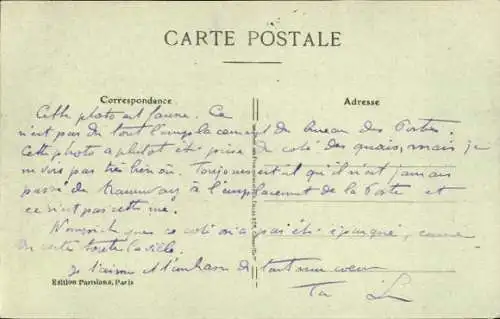 CARTE POSTALE
Correspondance
Adresse
Cette photo est fausse. Ce
n'est pas du tout l'emplacement du bureau des Postes.
Cette photo a plutôt été prise du coté des quais, mais je
ne vois pas très bien où. Toujours est il qu'il n'est jamais
passé de tramway à l'emplacement de la Poste et
ce n'est pas cette rue.
que ce coté on a pas été épargné, comme
toute la ville.
Je t'aime et t'embrasse de tout mon coeur
Ta L
Edition Parisiens, Paris